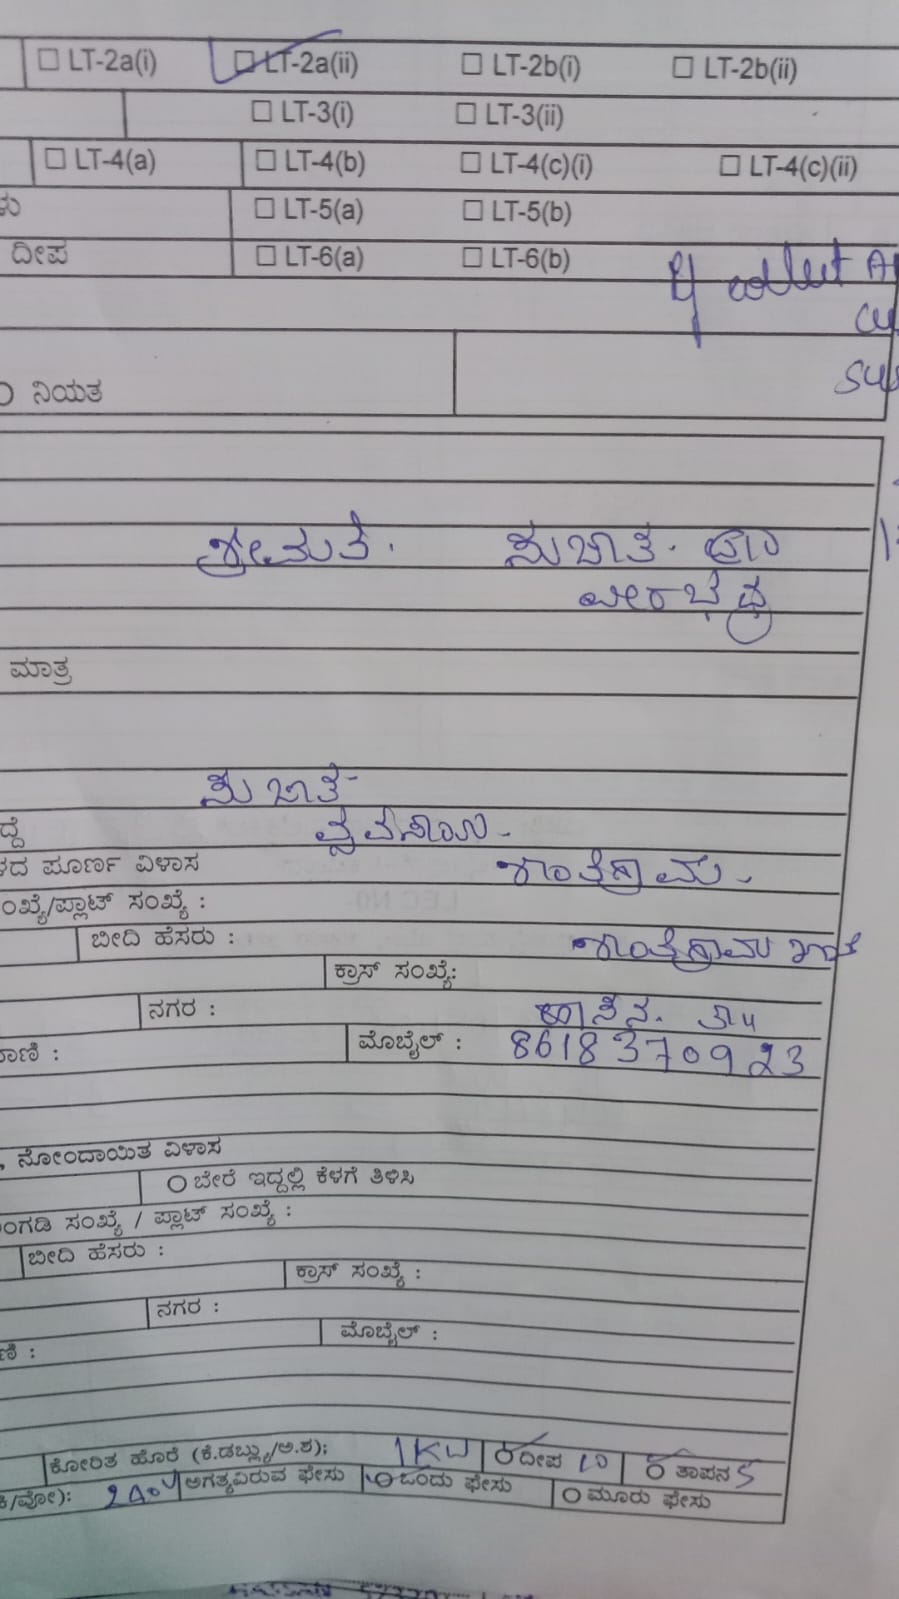 ☐ LT-2a(i) ☑ LT-2a(ii) ☐ LT-2b(i) ☐ LT-2b(ii)
☐ LT-3(i) ☐ LT-3(ii)
☐ LT-4(a) ☐ LT-4(b) ☐ LT-4(c)(i) ☐ LT-4(c)(ii)
☐ LT-5(a) ☐ LT-5(b)
ದೀಪ ☐ LT-6(a) ☐ LT-6(b)
collect
ನಿಯತ
ಶ್ರೀಮತಿ. ಸುಜಾತ.
ವೀರಭದ್ರ
ಮಾತ್ರ
ಸುಜಾತ
ವ್ಯವಸಾಯ
ಪೂರ್ಣ ವಿಳಾಸ ಶಾಂತಿಗ್ರಾಮ
ಸಂಖ್ಯೆ/ಪ್ಲಾಟ್ ಸಂಖ್ಯೆ :
ಬೀದಿ ಹೆಸರು : ಶಾಂತಿಗ್ರಾಮ
ಕ್ರಾಸ್ ಸಂಖ್ಯೆ:
ನಗರ : ಹಾಸನ. ತಾ॥
ಮೊಬೈಲ್ : 8618370923
ನೋಂದಾಯಿತ ವಿಳಾಸ
O ಬೇರೆ ಇದ್ದಲ್ಲಿ ಕೆಳಗೆ ತಿಳಿಸಿ
ಸಂಖ್ಯೆ / ಪ್ಲಾಟ್ ಸಂಖ್ಯೆ :
ಬೀದಿ ಹೆಸರು :
ಕ್ರಾಸ್ ಸಂಖ್ಯೆ :
ನಗರ :
ಮೊಬೈಲ್ :
ಕೋರಿತ ಹೊರೆ (ಕೆ.ಡಬ್ಲ್ಯು/ಅ.ಶ): 1KW O ದೀಪ O ತಾಪನ 5
240V ಅಗತ್ಯವಿರುವ ಫೇಸು O ಒಂದು ಫೇಸು O ಮೂರು ಫೇಸು